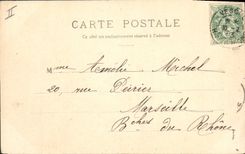 II
CARTE POSTALE
Ce côté est exclusivement réservé à l'adresse
Mme Amélie Michel
20, rue Périer
Marseille
B. ches du Rhône